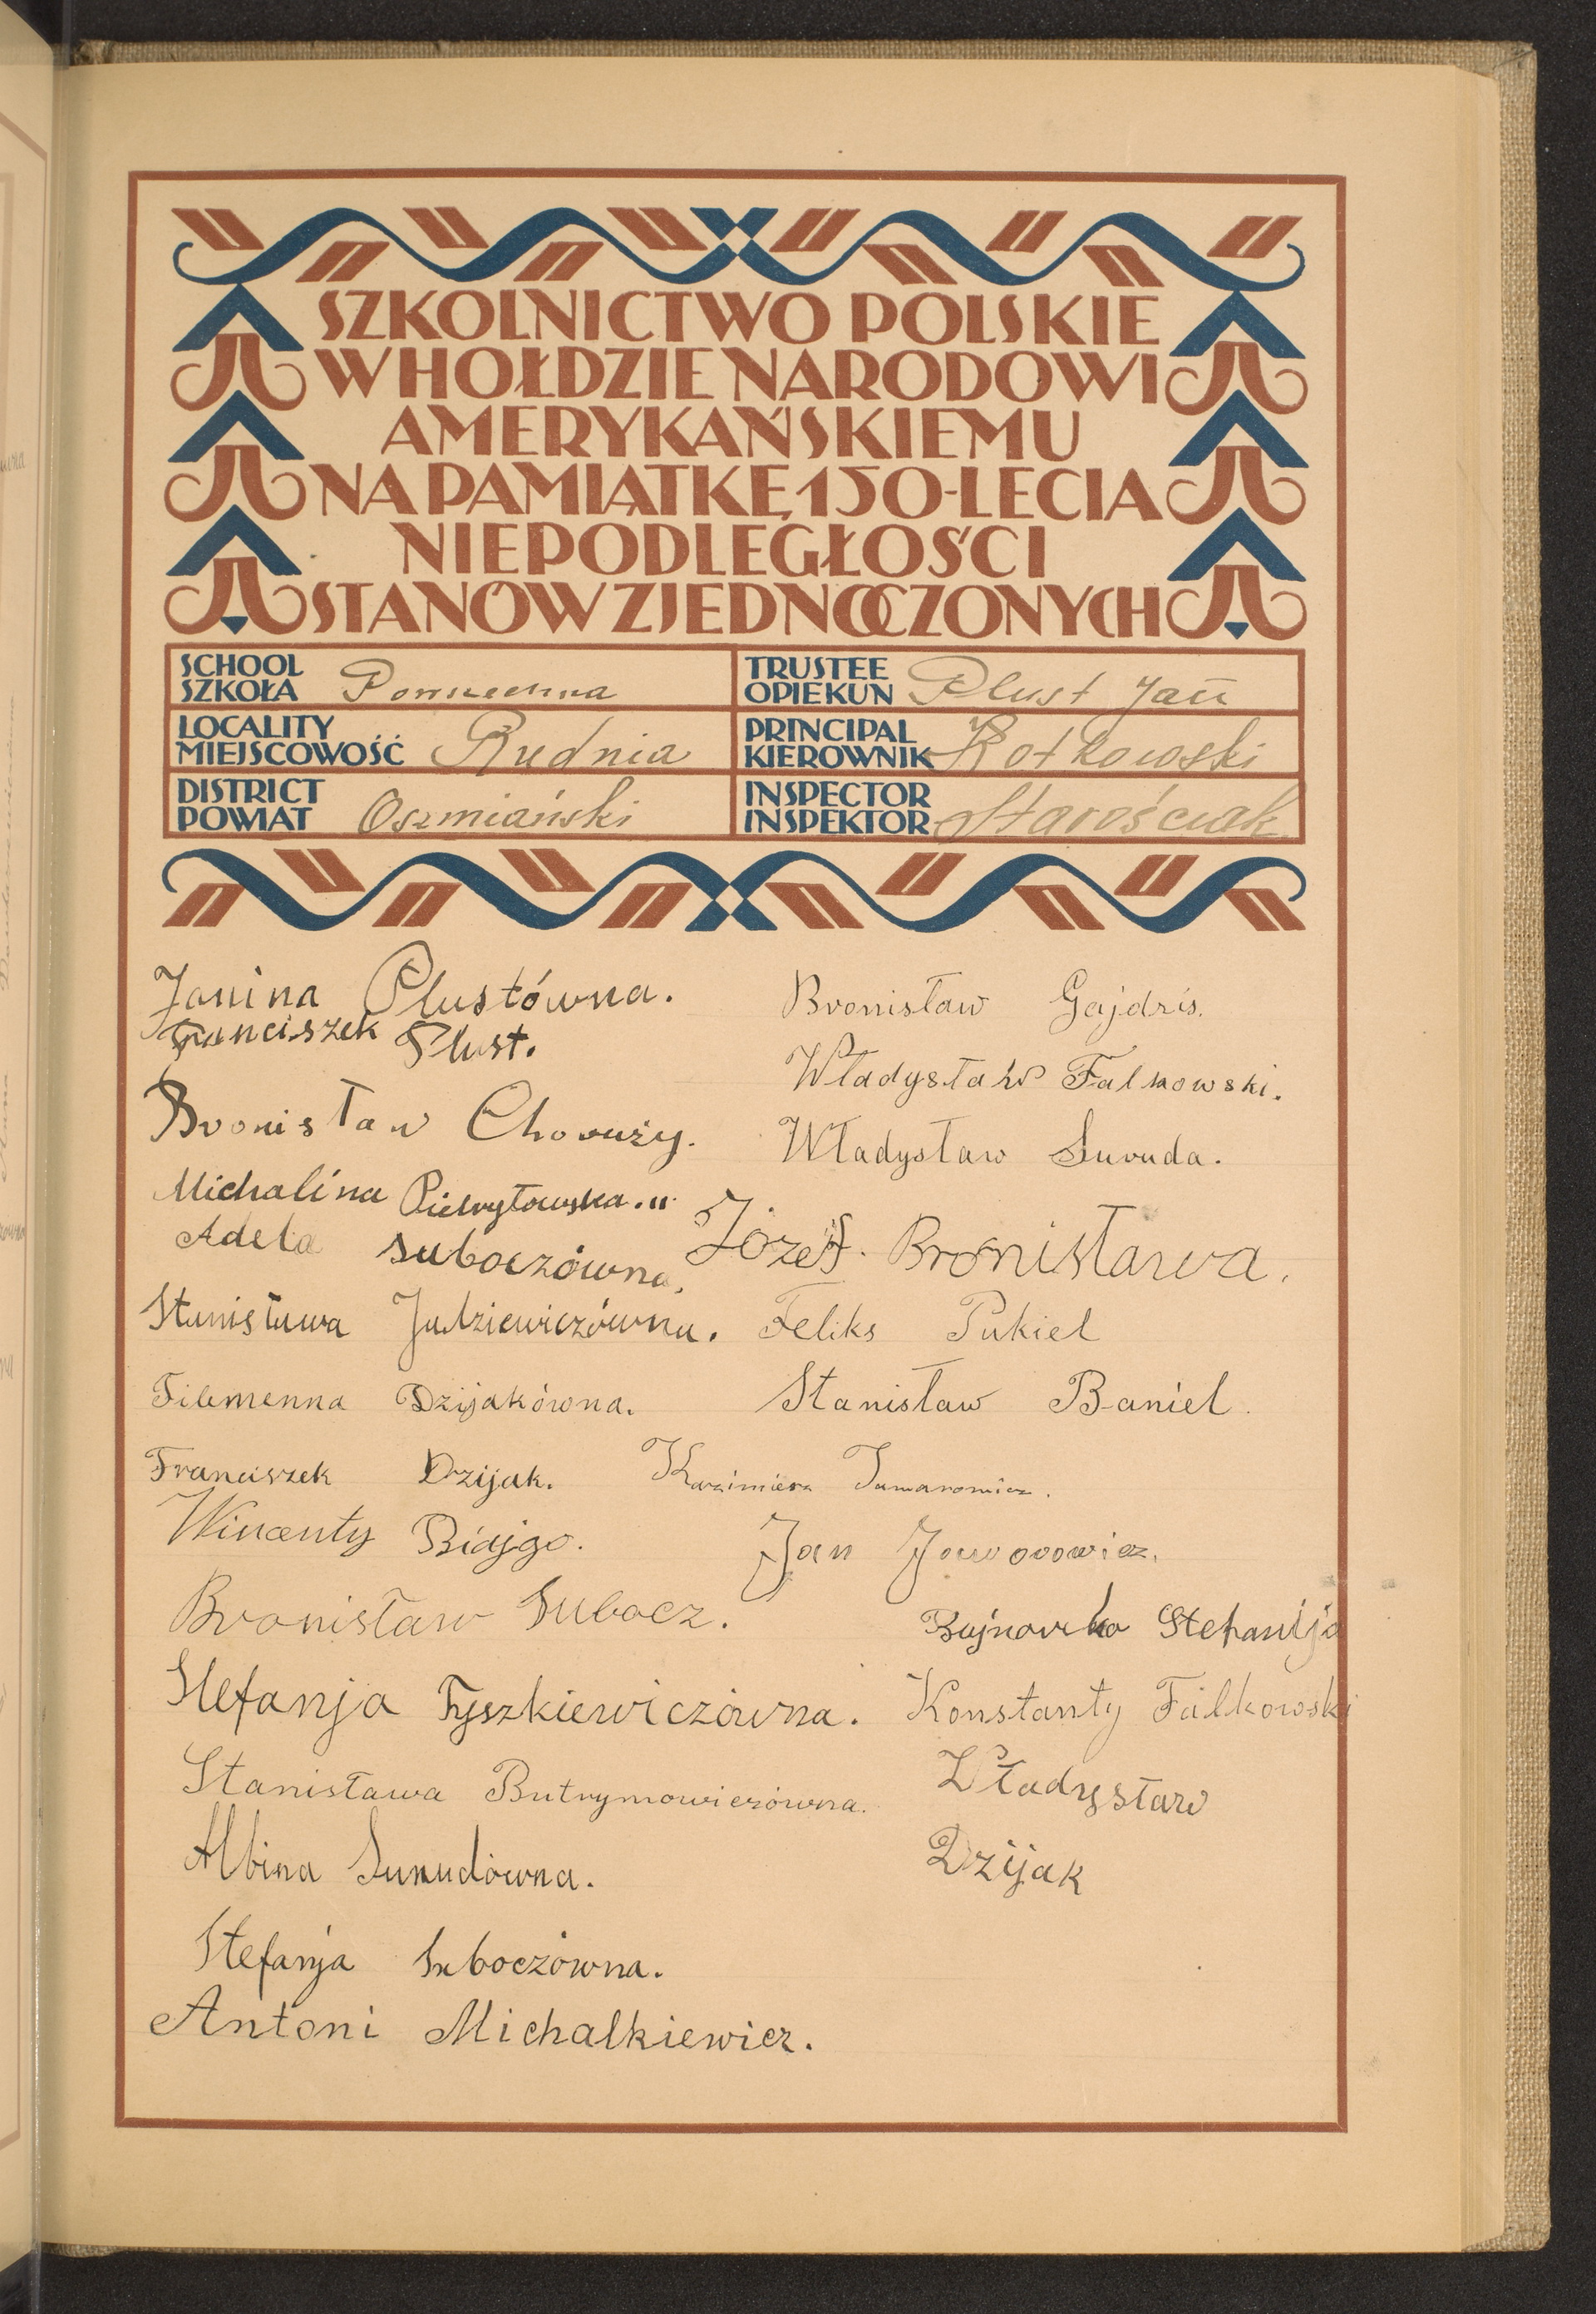 SZKOLNICTWO POLSKIE
W HOŁDZIE NARODOWI
AMERYKAŃSKIEMU
NA PAMIĄTKĘ 150-LECIA
NIEPODLEGŁOŚCI
STANÓW ZJEDNOCZONYCH
SCHOOL
SZKOŁA Powszechna
TRUSTEE
OPIEKUN Plust Jan
LOCALITY
MIEJSCOWOŚĆ Rudnia
PRINCIPAL
KIEROWNIK Rotkowski
DISTRICT
POWIAT Oszmiański
INSPECTOR
INSPEKTOR Starościak
Janina Plustówna.
Franciszek Plust.
Bronisław Choruży.
Michalina
Adela Suboczówna.
Stanisława Judziewiczówna.
Filomenna Dzijakówna.
Franciszek Dzijak.
Wincenty Biajgo.
Bronisław Subocz.
Stefanja Tyszkiewiczówna.
Stanisława Butrymowiczówna.
Albina Surudówna.
Stefanja Suboczówna.
Antoni Michalkiewicz.
Bronisław Gajdzis.
Władysław Falkowski.
Władysław Suruda.
Józef. Bronisława.
Feliks Pukiel
Stanisław Baniel.
Kazimierz
Jan Jaworowicz.
Stefanija
Konstanty Falkowski
Władysław
Dzijak